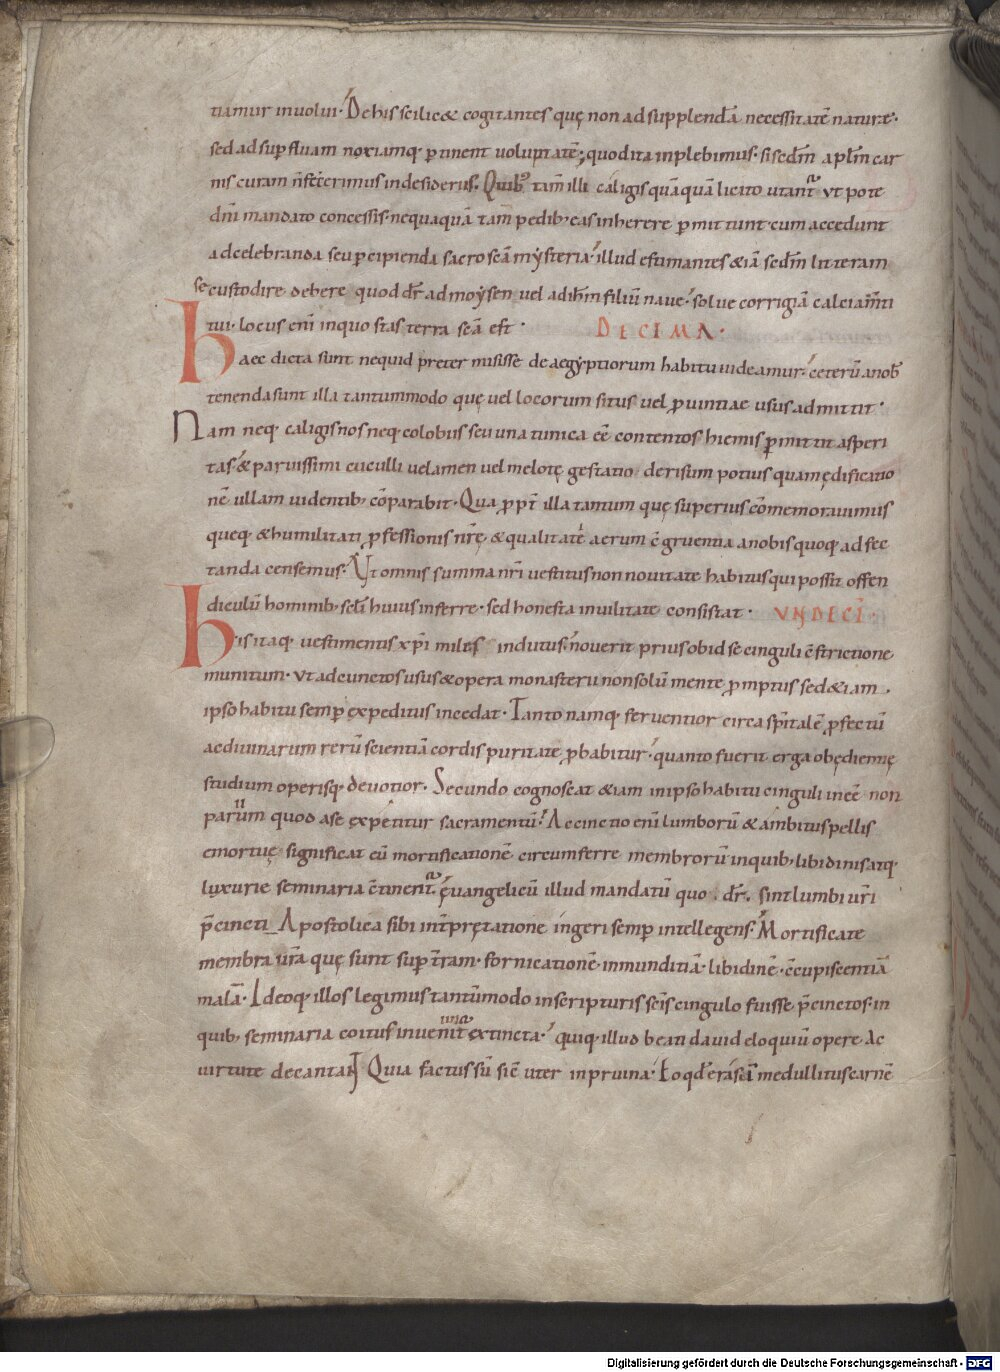 tiamur inuolui. De his scilic& cogitantes quę non ad supplendā necessitatē naturę.
sed ad sup̄fluam noxiamq; p̄tinent uoluptatē; quod ita inplebimus. si sedm̄ apl̄m car
nis curam n̄ fecerimus in desideriis. Quib; tam̄ illi caligis quāquā licito utant̄ ut pote
dn̄i mandato concessis. nequaquā tam̄ pedib; eas inherere p̄mittunt. cum accedunt
ad celebranda seu p̄cipienda sacrosc̄a mysteria. illud estimantes &iā sedm̄ litteram
se custodire debere quod dr̄ ad moysen uel ad ih̄m filiū naue. solue corrigiā calciam̄ti
tui. locus eni in quo stas terra sc̄a est. DECIMA.
Haec dicta sunt nequid pretermisisse de aegyptiorum habitu uideamur. ceterū a nob̄
tenenda sunt illa tantummodo quę uel locorum situs uel p̄uintiae usus admittit.
Nam neq; caligis nos neq; colobiis seu una tunica eē contentos hiemis p̄mittit asperi
tas. & paruissimi cuculli uelamen uel melotę gestatio derisum potius quam ędificatio
nē ullam uidentib; cōparabit. Qua p̄pt̄ illa tantum quę superius cōmemorauimus
queq; & humilitati p̄fessionis nr̄ę & qualitatē aerum c̄gruentia a nobis quoq; adfec
tanda censemus. Ut omnis summa nr̄i uestitus non nouitate habitus qui possit offen
diculū hominib; sęl̄i huius inferre. sed honesta in uilitate consistat. UNDECI.
His itaq; uestimentis xp̄i miles indutus. nouerit prius ob id se cinguli c̄strictione
munitum. ut ad cunctos usus & opera monasterii non solū mente p̄mptus sed &iam
ipso habitu semp̄ expeditus incedat. Tanto namq; feruentior circa sp̄italē p̄fectū
ac diuinarum rerū scientiā cordis puritate p̄babitur. quanto fuerit erga obędientię
studium operisq; deuotior. Secundo cognoscat &iam in ipso habitu cinguli inēe non
paruum quod a se expetitur sacramentū. Accinctio eni lumborū & ambitus pellis
emortuę significat eū mortificationē circumferre membrorū in quib; libidinis atq;
luxurię seminaria c̄tinent̄. ęuangelicū illud mandatū quo dr̄. sint lumbi ur̄i
p̄cincti. Apostolica sibi int̄pretatione ingeri semp̄ intellegens. Mortificate
membra ur̄a quę sunt sup̄ t̄ram. fornicationē. inmunditiā. libidinē. c̄cupiscentiā
malā. Ideoq; illos legimus tantūmodo in scripturis sc̄is cingulo fuisse p̄cinctos. in
quib; seminaria coitus inueniunt̄ extincta. quiq; illud beati dauid eloquiū opere ac
uirtute decantant. Quia factus sū sic̄ uter in pruina.